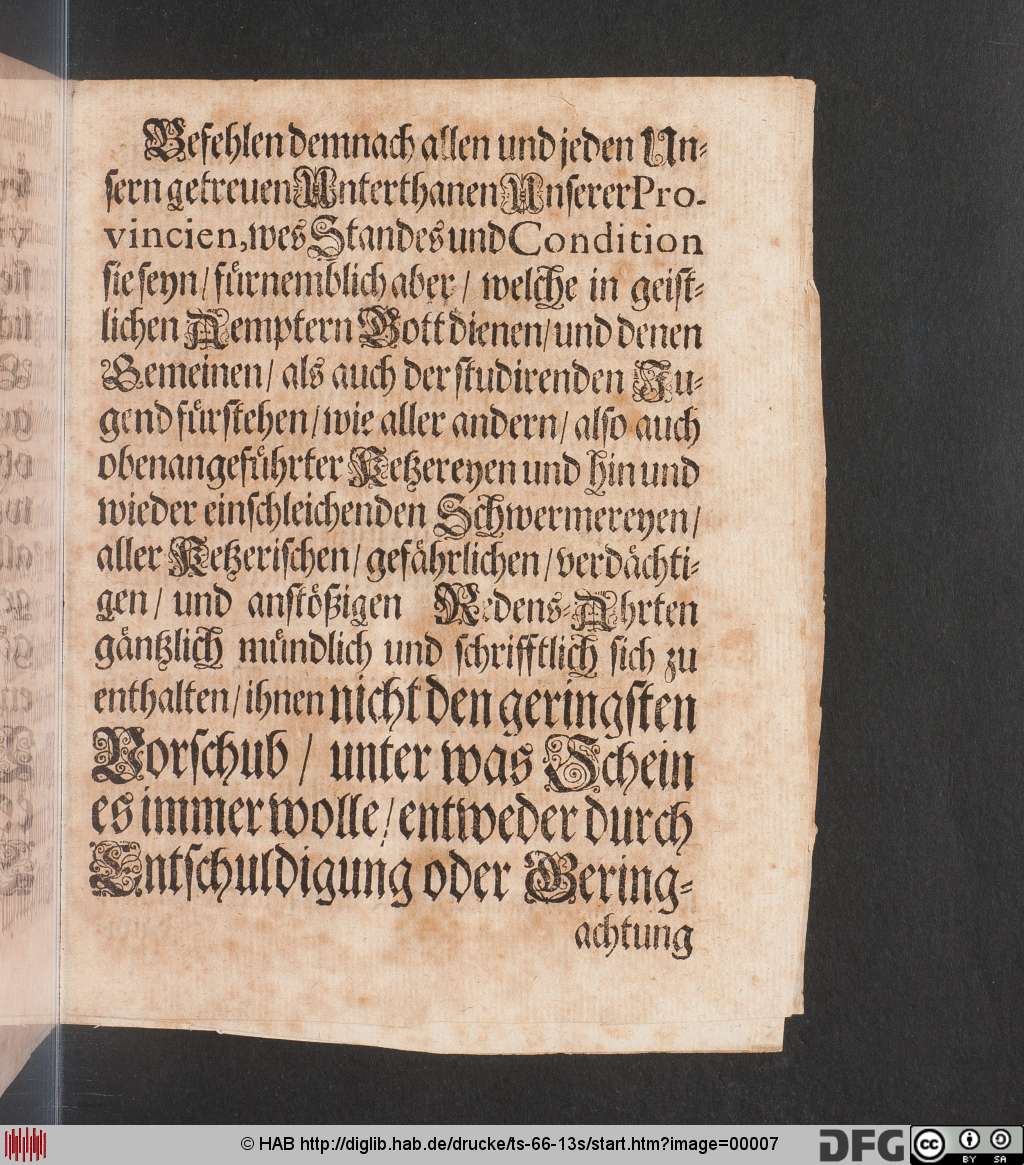 Befehlen demnach allen und jeden Un-
sern getreuen Unterthanen Unserer Pro-
vincien, wes Standes und Condition
sie seyn / fürnemblich aber / welche in geist-
lichen Aemptern Gott dienen / und denen
Gemeinen / als auch der studirenden Ju-
gend fürstehen / wie aller andern / also auch
obenangeführter Ketzereyen und hin und
wieder einschleichenden Schwermereyen /
aller Ketzerischen / gefährlichen / verdächti-
gen / und anstößigen Redens-Ahrten
gäntzlich mündlich und schrifftlich sich zu
enthalten / ihnen nicht den geringsten
Vorschub / unter was Schein
es immer wolle / entweder durch
Entschuldigung oder Gering-
achtung
© HAB http://diglib.hab.de/drucke/ts-66-13s/start.htm?image=00007
DFG
cc BY SA